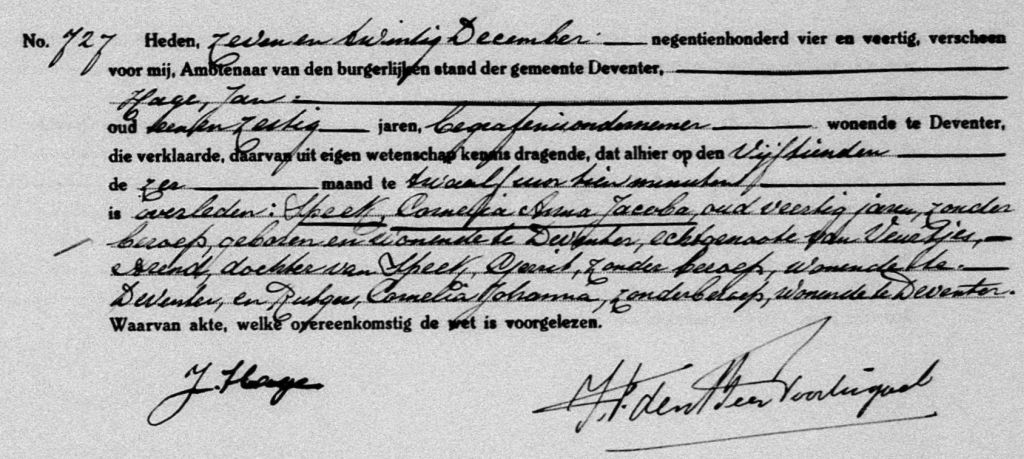 No. 727 Heden, zeven en twintig December negentienhonderd vier en veertig, verscheen
voor mij, Ambtenaar van den burgerlijken stand der gemeente Deventer,
Hage, Jan
oud een en zestig jaren, begrafenisondernemer wonende te Deventer,
die verklaarde, daarvan uit eigen wetenschap kennis dragende, dat alhier op den vijftienden
de zer maand te twaalf uur tien minuten
is overleden: Speek, Cornelia Anna Jacoba, oud veertig jaren, zonder
beroep, geboren en wonende te Deventer, echtgenoote van
Arend, dochter van Speek, Gerrit, zonder beroep, wonende te
Deventer, en Rutger, Cornelia Johanna, zonder beroep, wonende te Deventer.
Waarvan akte, welke overeenkomstig de wet is voorgelezen.
J. Hage